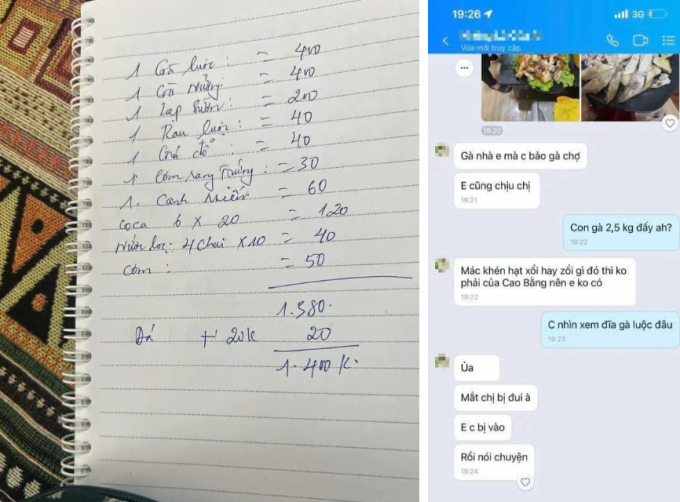 1 Gà luộc : = 400
1 Gà nướng = 400
1 Lạp sườn : = 200
1 Rau luộc : = 40
1 Giá đỗ : = 40
1 Cơm rang trứng : = 30
1. Canh Miến = 60
Coca 6 x 20 = 120
Nước lọc : 4 chai x 10 = 40
Cơm : = 50
1.380.
Đá + 20k 20
1.400 K.
19:26
3G
Vừa mới truy cập
19:20
Gà nhà e mà c bảo gà chợ
E cũng chịu chị
19:21
Con gà 2,5 kg đấy ah?
19:22
Mác khén hạt xổi hay zổi gì đó thì ko
phải của Cao Bằng nên e ko có
19:22
C nhìn xem đĩa gà luộc đâu
19:23
Ủa
Mắt chị bị đui à
E c bị vào
Rồi nói chuyện
19:24